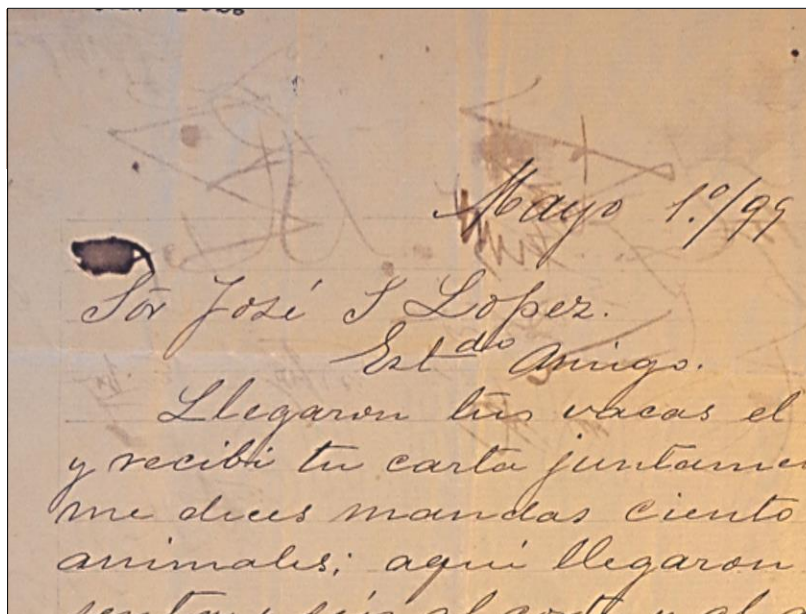 Mayo 1.º/99
Sör José S Lopez.
Estdo Amigo.
Llegaron tus vacas el
y recibi tu carta juntamen
me dices mandas ciento
animales; aqui llegaron